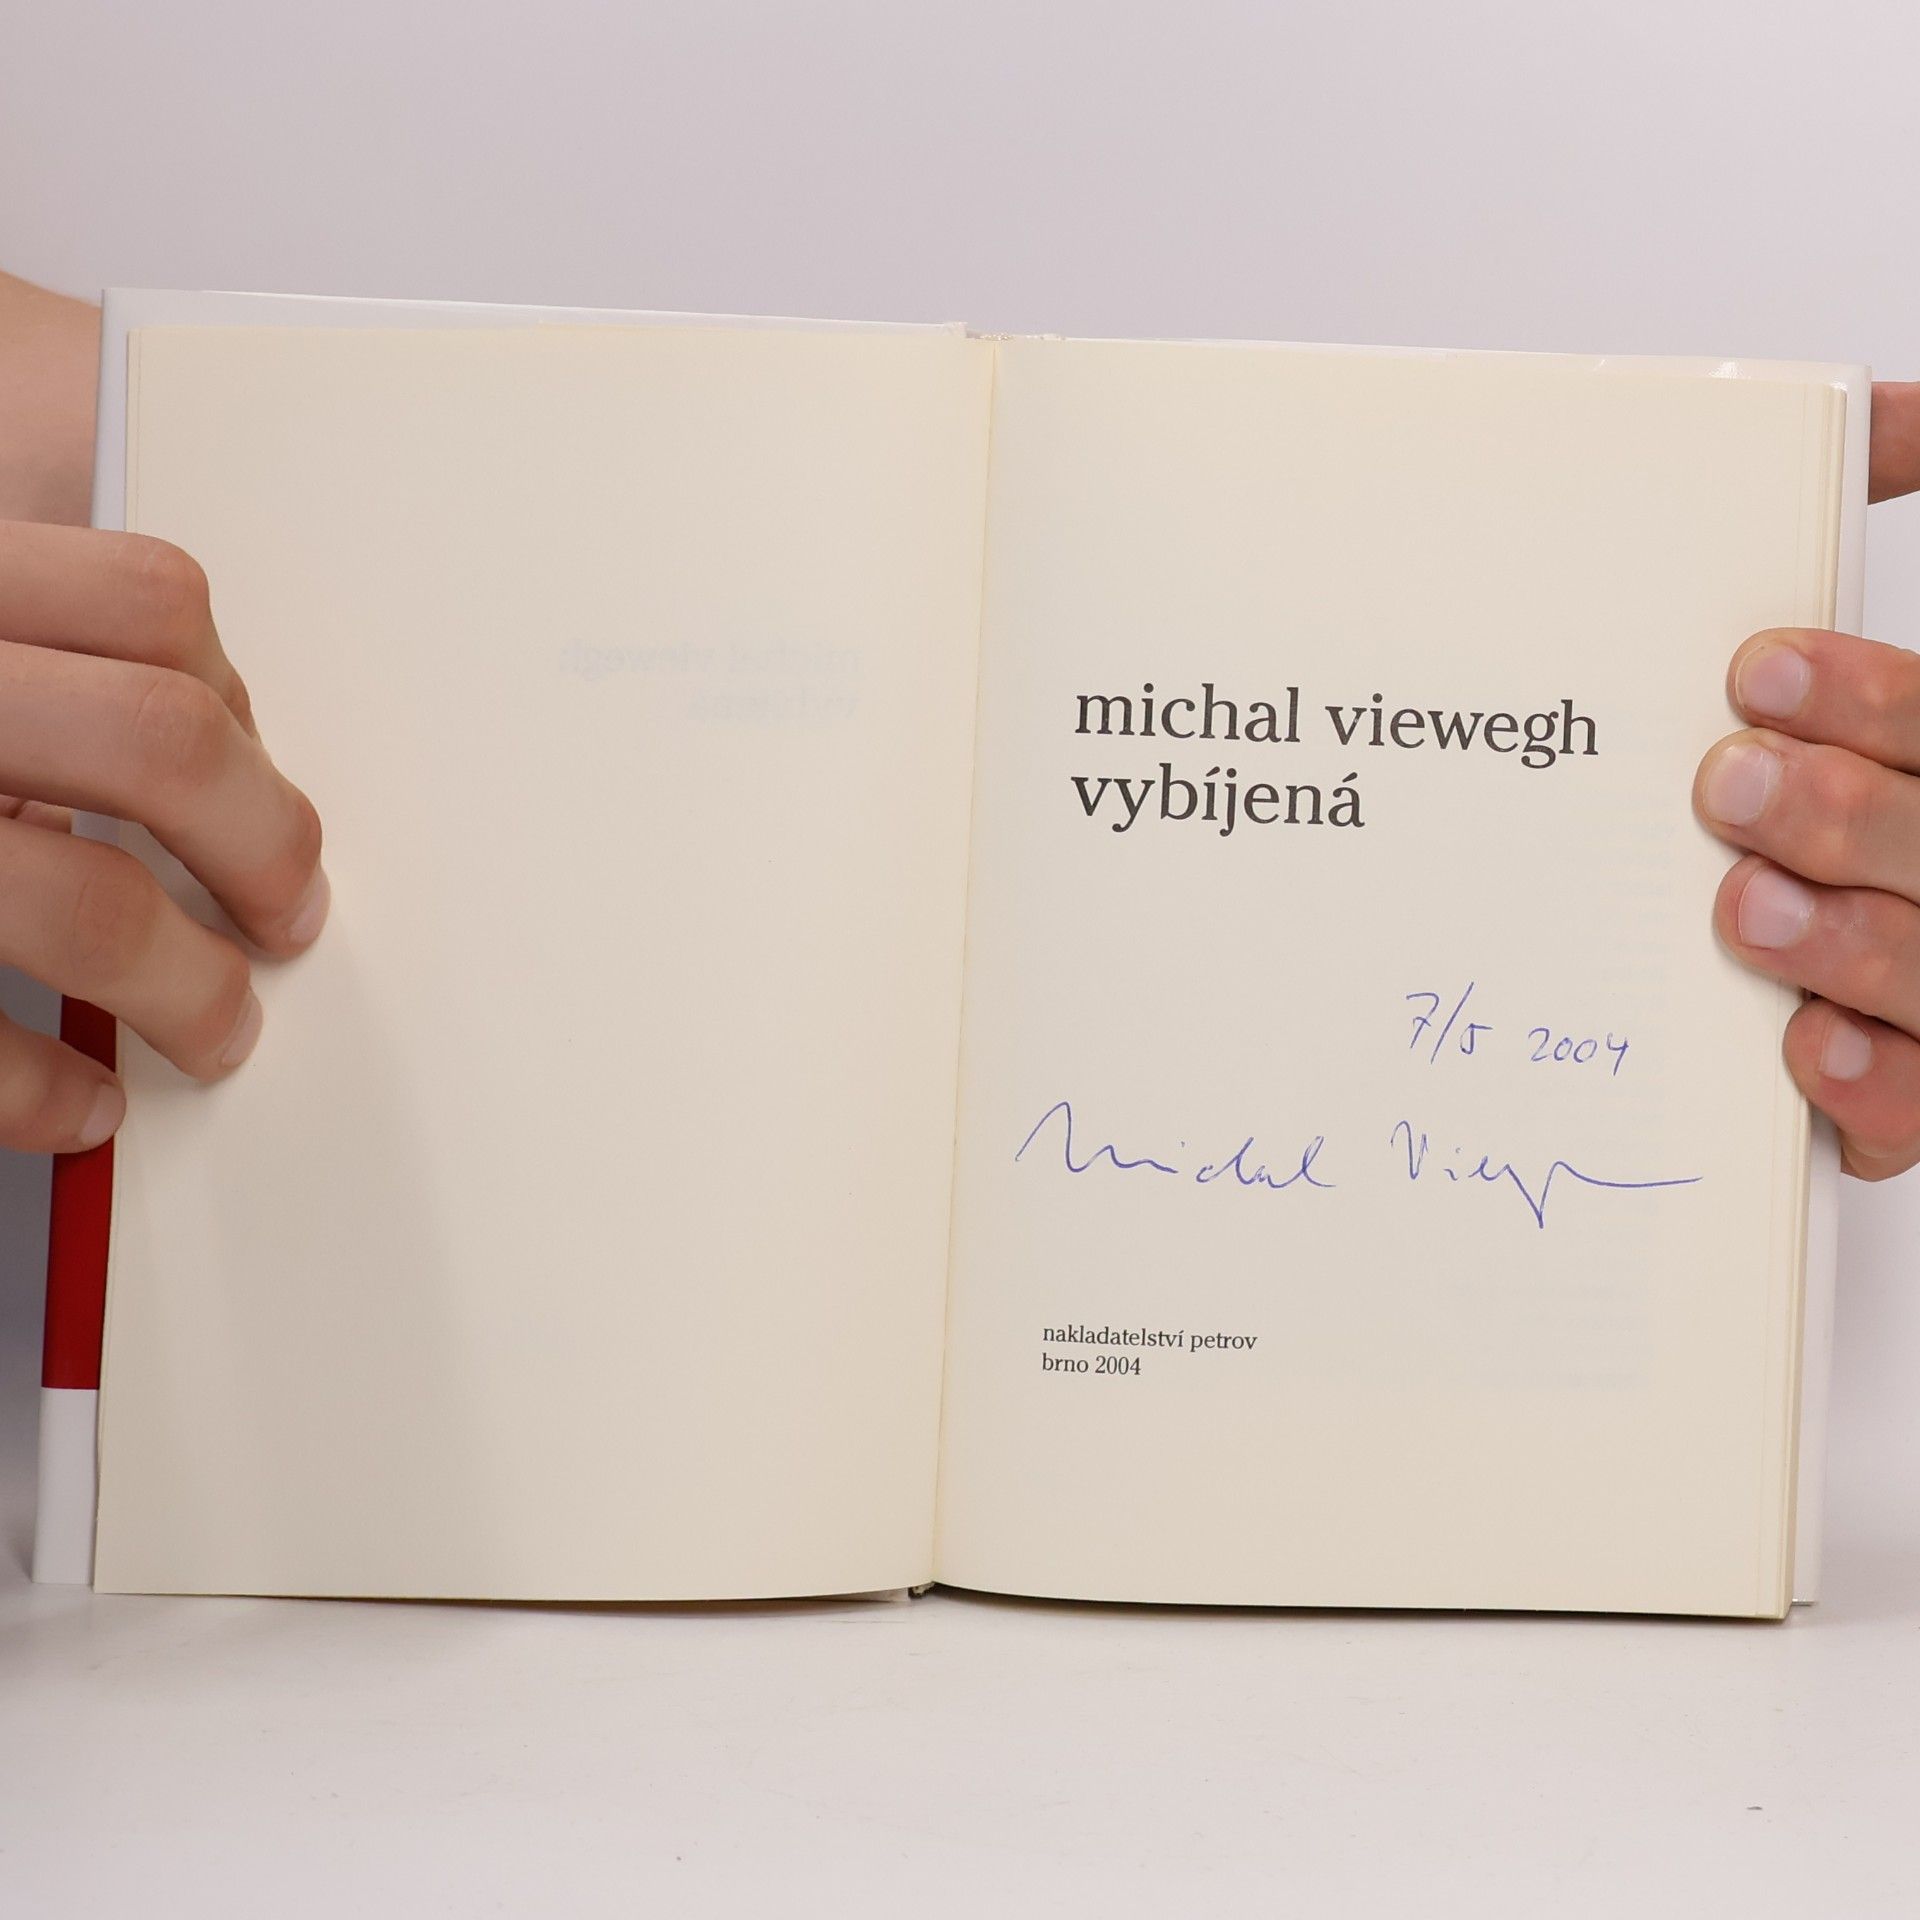 michal viewegh
vybíjená
7/5 2004
Michal Viewegh
nakladatelství petrov
brno 2004